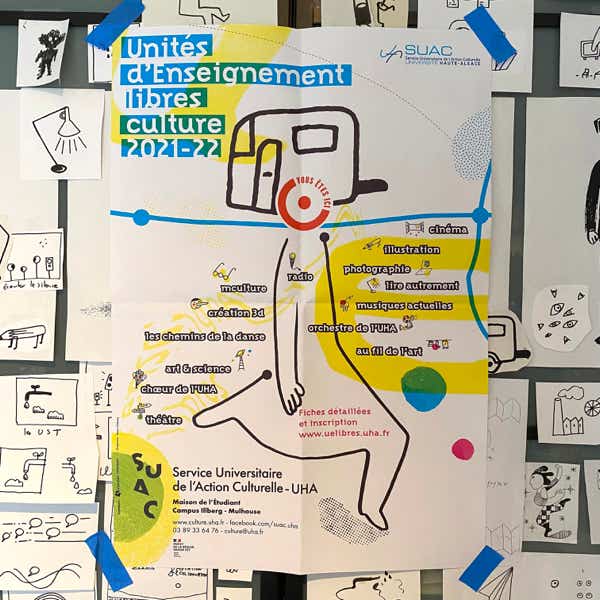 Unités
d'Enseignement
libres
culture
2021-22
SUAC
Service Universitaire de l'Action Culturelle
UNIVERSITÉ HAUTE-ALSACE
VOUS ÊTES ICI
cinéma
illustration
photographie
lire autrement
radio
mculture
musiques actuelles
création 3d
orchestre de l'UHA
les chemins de la danse
au fil de l'art
art & science
chœur de l'UHA
théâtre
Fiches détaillées
et inscription
www.uelibres.uha.fr
SUAC
Service Universitaire
de l'Action Culturelle - UHA
Maison de l'Étudiant
Campus Illberg - Mulhouse
www.culture.uha.fr - facebook.com/suac.uha
03 89 33 64 76 - culture@uha.fr
écouter le silence